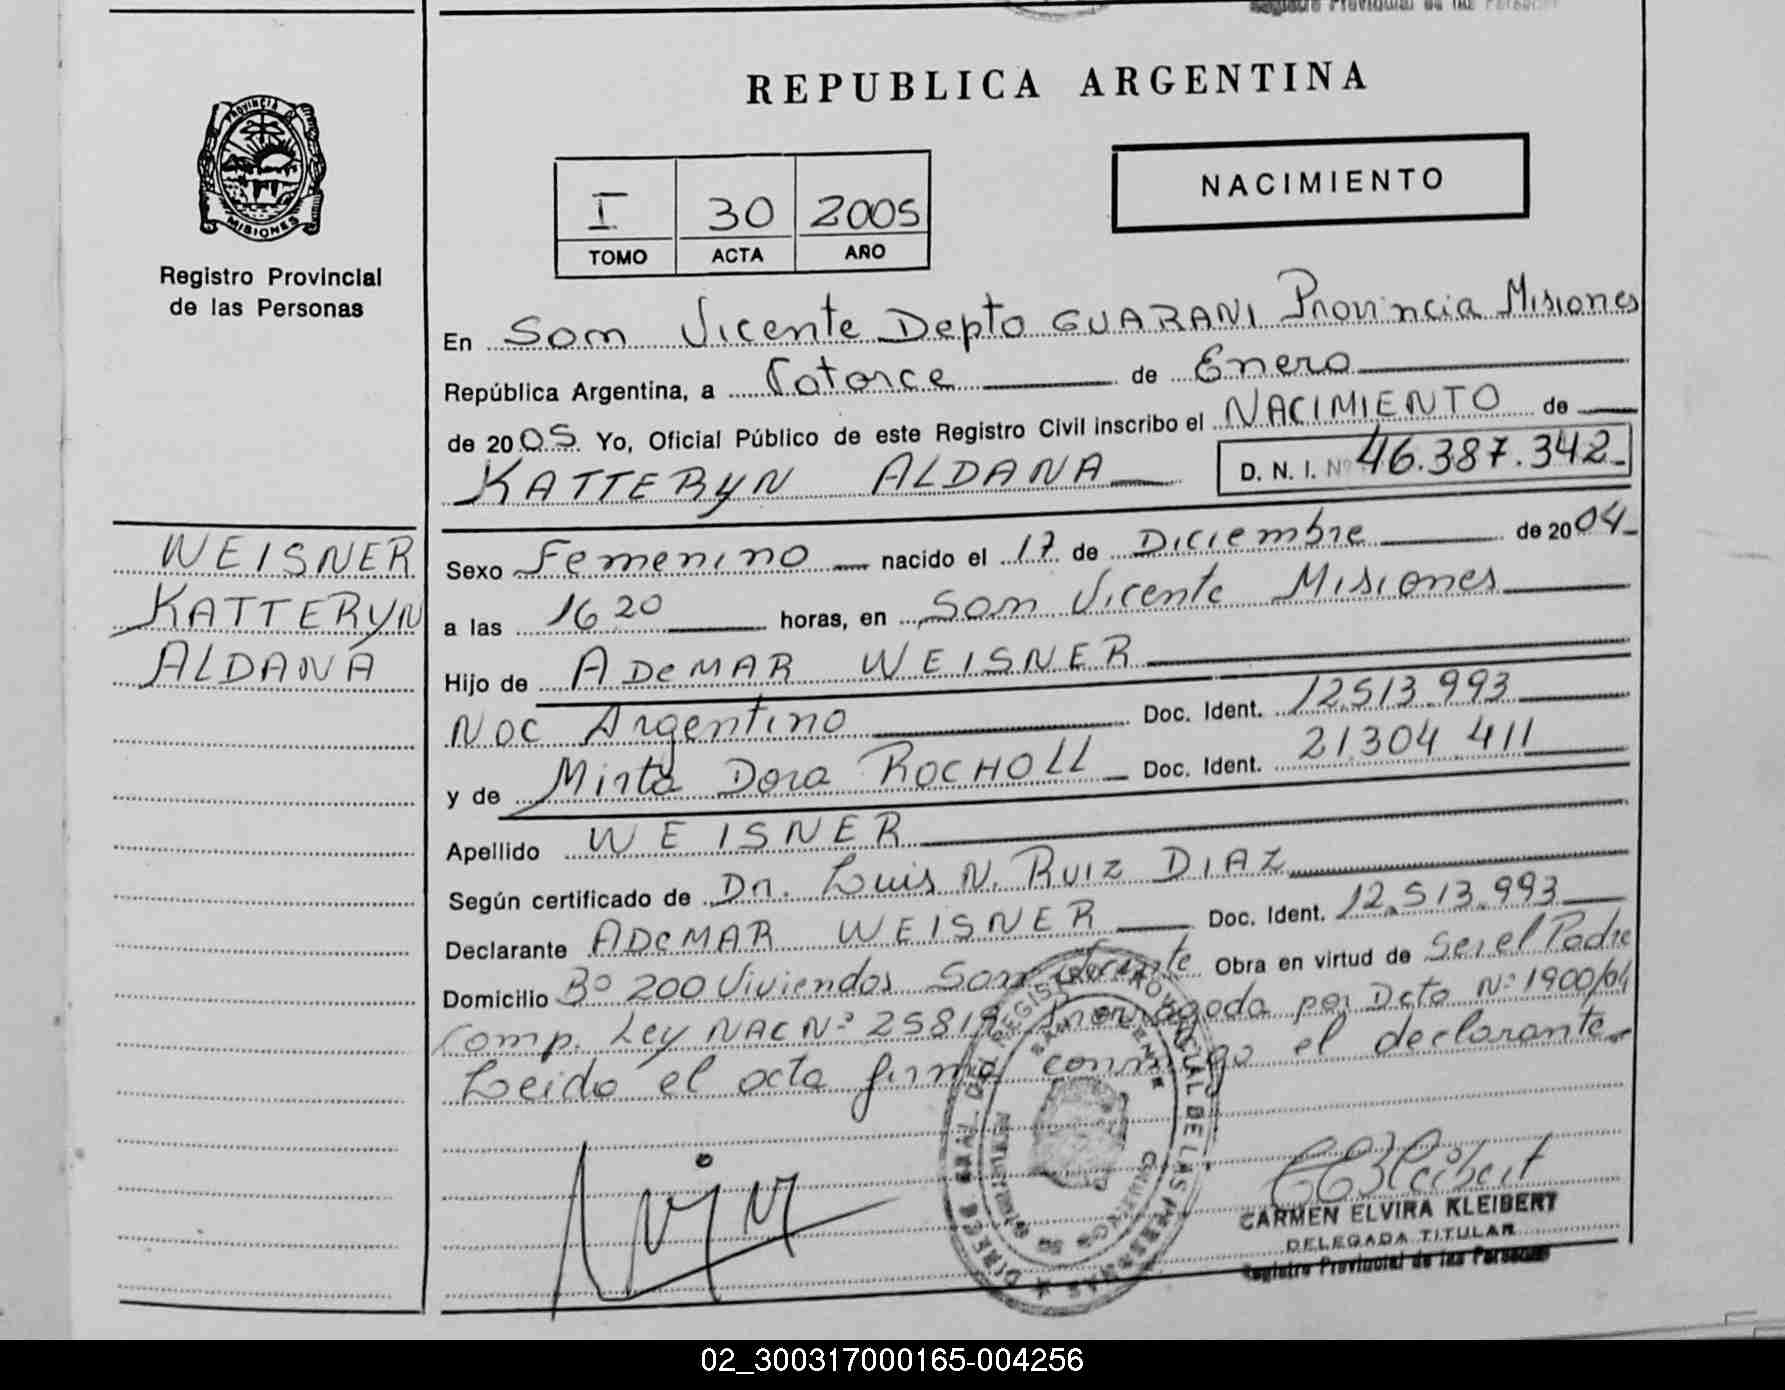 REPUBLICA ARGENTINA
PROVINCIA
MISIONES
Registro Provincial
de las Personas
NACIMIENTO
I 30 2005
TOMO ACTA AÑO
En San Vicente Depto GUARANI Provincia Misiones
República Argentina, a Catorce de Enero
de 2005 Yo, Oficial Público de este Registro Civil inscribo el NACIMIENTO de
KATTERYN ALDANA D. N. I. Nº 46.387.342
WEISNER
KATTERYN
ALDANA
Sexo Femenino nacido el 17 de Diciembre de 2004
a las 16 20 horas, en San Vicente Misiones
Hijo de ADEMAR WEISNER
Nac Argentino Doc. Ident. 12.513.993
y de Mirta Dora ROCHOLL Doc. Ident. 21304 411
Apellido WEISNER
Según certificado de Dr. Luis N. RUIZ DIAZ
Declarante ADEMAR WEISNER Doc. Ident. 12.513.993
Domicilio Bº 200 Viviendas San Vicente Obra en virtud de Ser el Padre
Comp. Ley NAC Nº 25819 Prorrogada por Dcto Nº 1900/04
Leida el acta firma conmigo el declarante
REGISTRO PROVINCIAL DE LAS PERSONAS
CARMEN ELVIRA KLEIBERT
DELEGADA TITULAR
Registro Provincial de las Personas
02_300317000165-004256